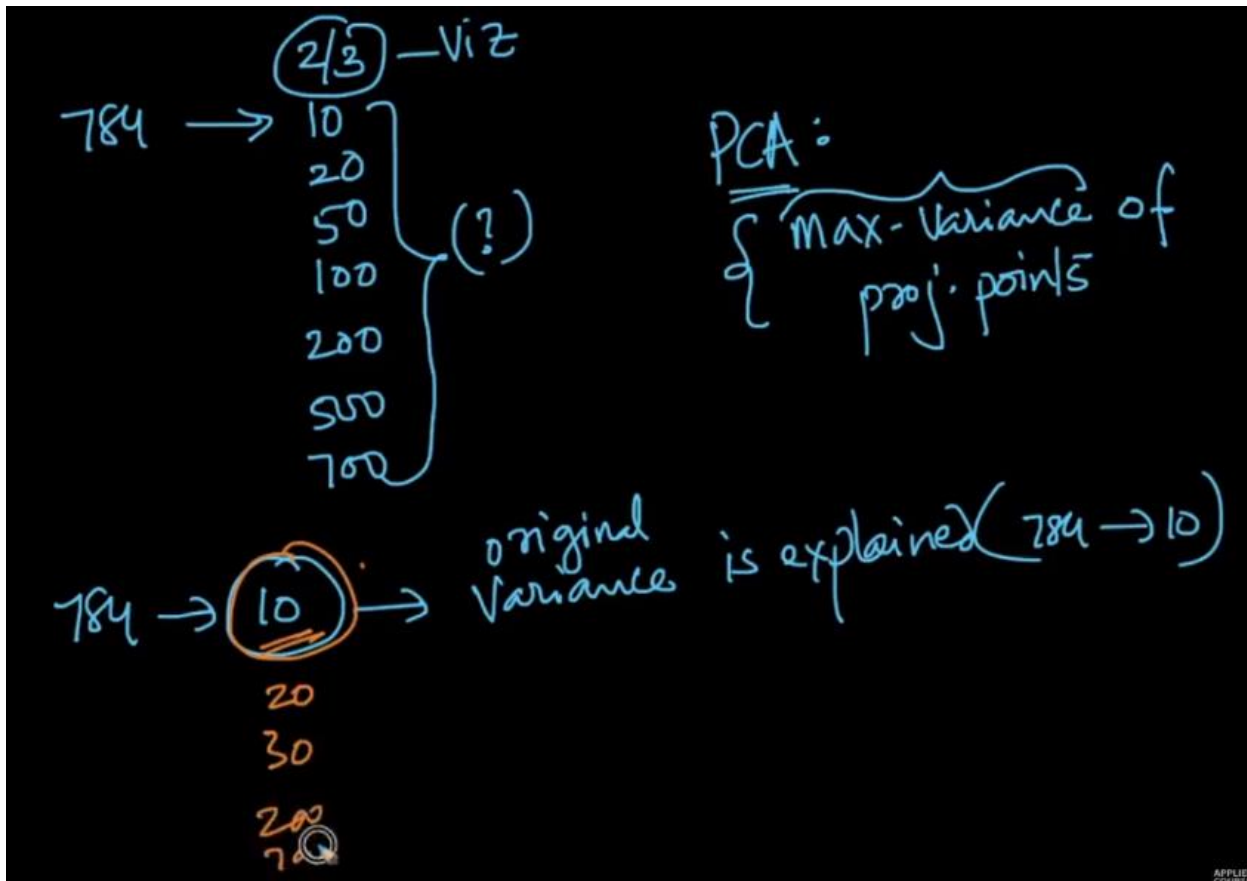 2/3 - Viz
784 → 10
20
50
100
200
500
700
(?)
PCA:
{ max-variance of
proj. points
784 → 10 → original variance is explained (784 → 10)
20
30
200
APPLIED
COURSE